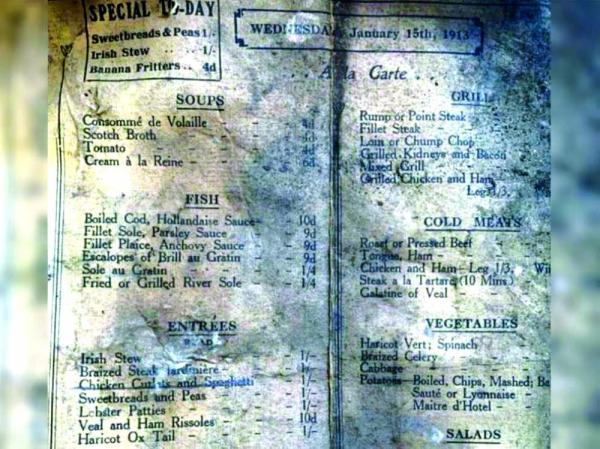 SPECIAL TO-DAY
Sweetbreads & Peas 1/-
Irish Stew .. 1/-
Banana Fritters .. 4d
WEDNESDAY January 15th, 1913
A la Carte
SOUPS
Consommé de Volaille - - 4d
Scotch Broth - - - 4d
Tomato - - - 4d
Cream à la Reine - - - 6d
FISH
Boiled Cod, Hollandaise Sauce - 10d
Fillet Sole, Parsley Sauce - 9d
Fillet Plaice, Anchovy Sauce - 9d
Escalopes of Brill au Gratin - 9d
Sole au Gratin - - 1/4
Fried or Grilled River Sole - 1/4
ENTRÉES
Irish Stew - - - 1/-
Braized Steak Jardinière - - 1/-
Chicken Cutlets and Spaghetti - 1/-
Sweetbreads and Peas - - 1/-
Lobster Patties - - 1/-
Veal and Ham Rissoles - - 10d
Haricot Ox Tail - - 1/-
GRILL
Rump or Point Steak
Fillet Steak
Loin or Chump Chop
Grilled Kidneys and Bacon
Mixed Grill
Grilled Chicken and Ham
Leg 1/3,
COLD MEATS
Roast or Pressed Beef
Tongue, Ham
Chicken and Ham - Leg 1/3, Wi
Steak a la Tartare (10 Mins.)
Galatine of Veal
VEGETABLES
Haricot Vert; Spinach
Braized Celery
Cabbage
Potatoes - Boiled, Chips, Mashed; Ba
Sauté or Lyonnaise
Maitre d'Hotel
SALADS